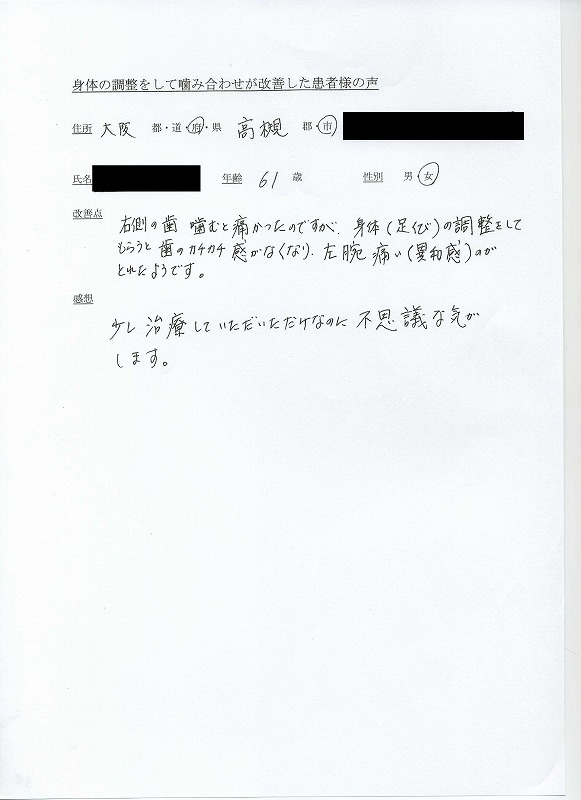 身体の調整をして噛み合わせが改善した患者様の声
住所 大阪 都・道・府・県 高槻 郡・市
氏名 年齢 61 歳 性別 男・女
改善点
右側の歯 噛むと痛かったのですが、身体(足くび)の調整をして
もらうと歯のカチカチ感がなくなり、左腕 痛い(異和感)のが
とれたようです。
感想
少し治療していただいただけなのに不思議な気が
します。